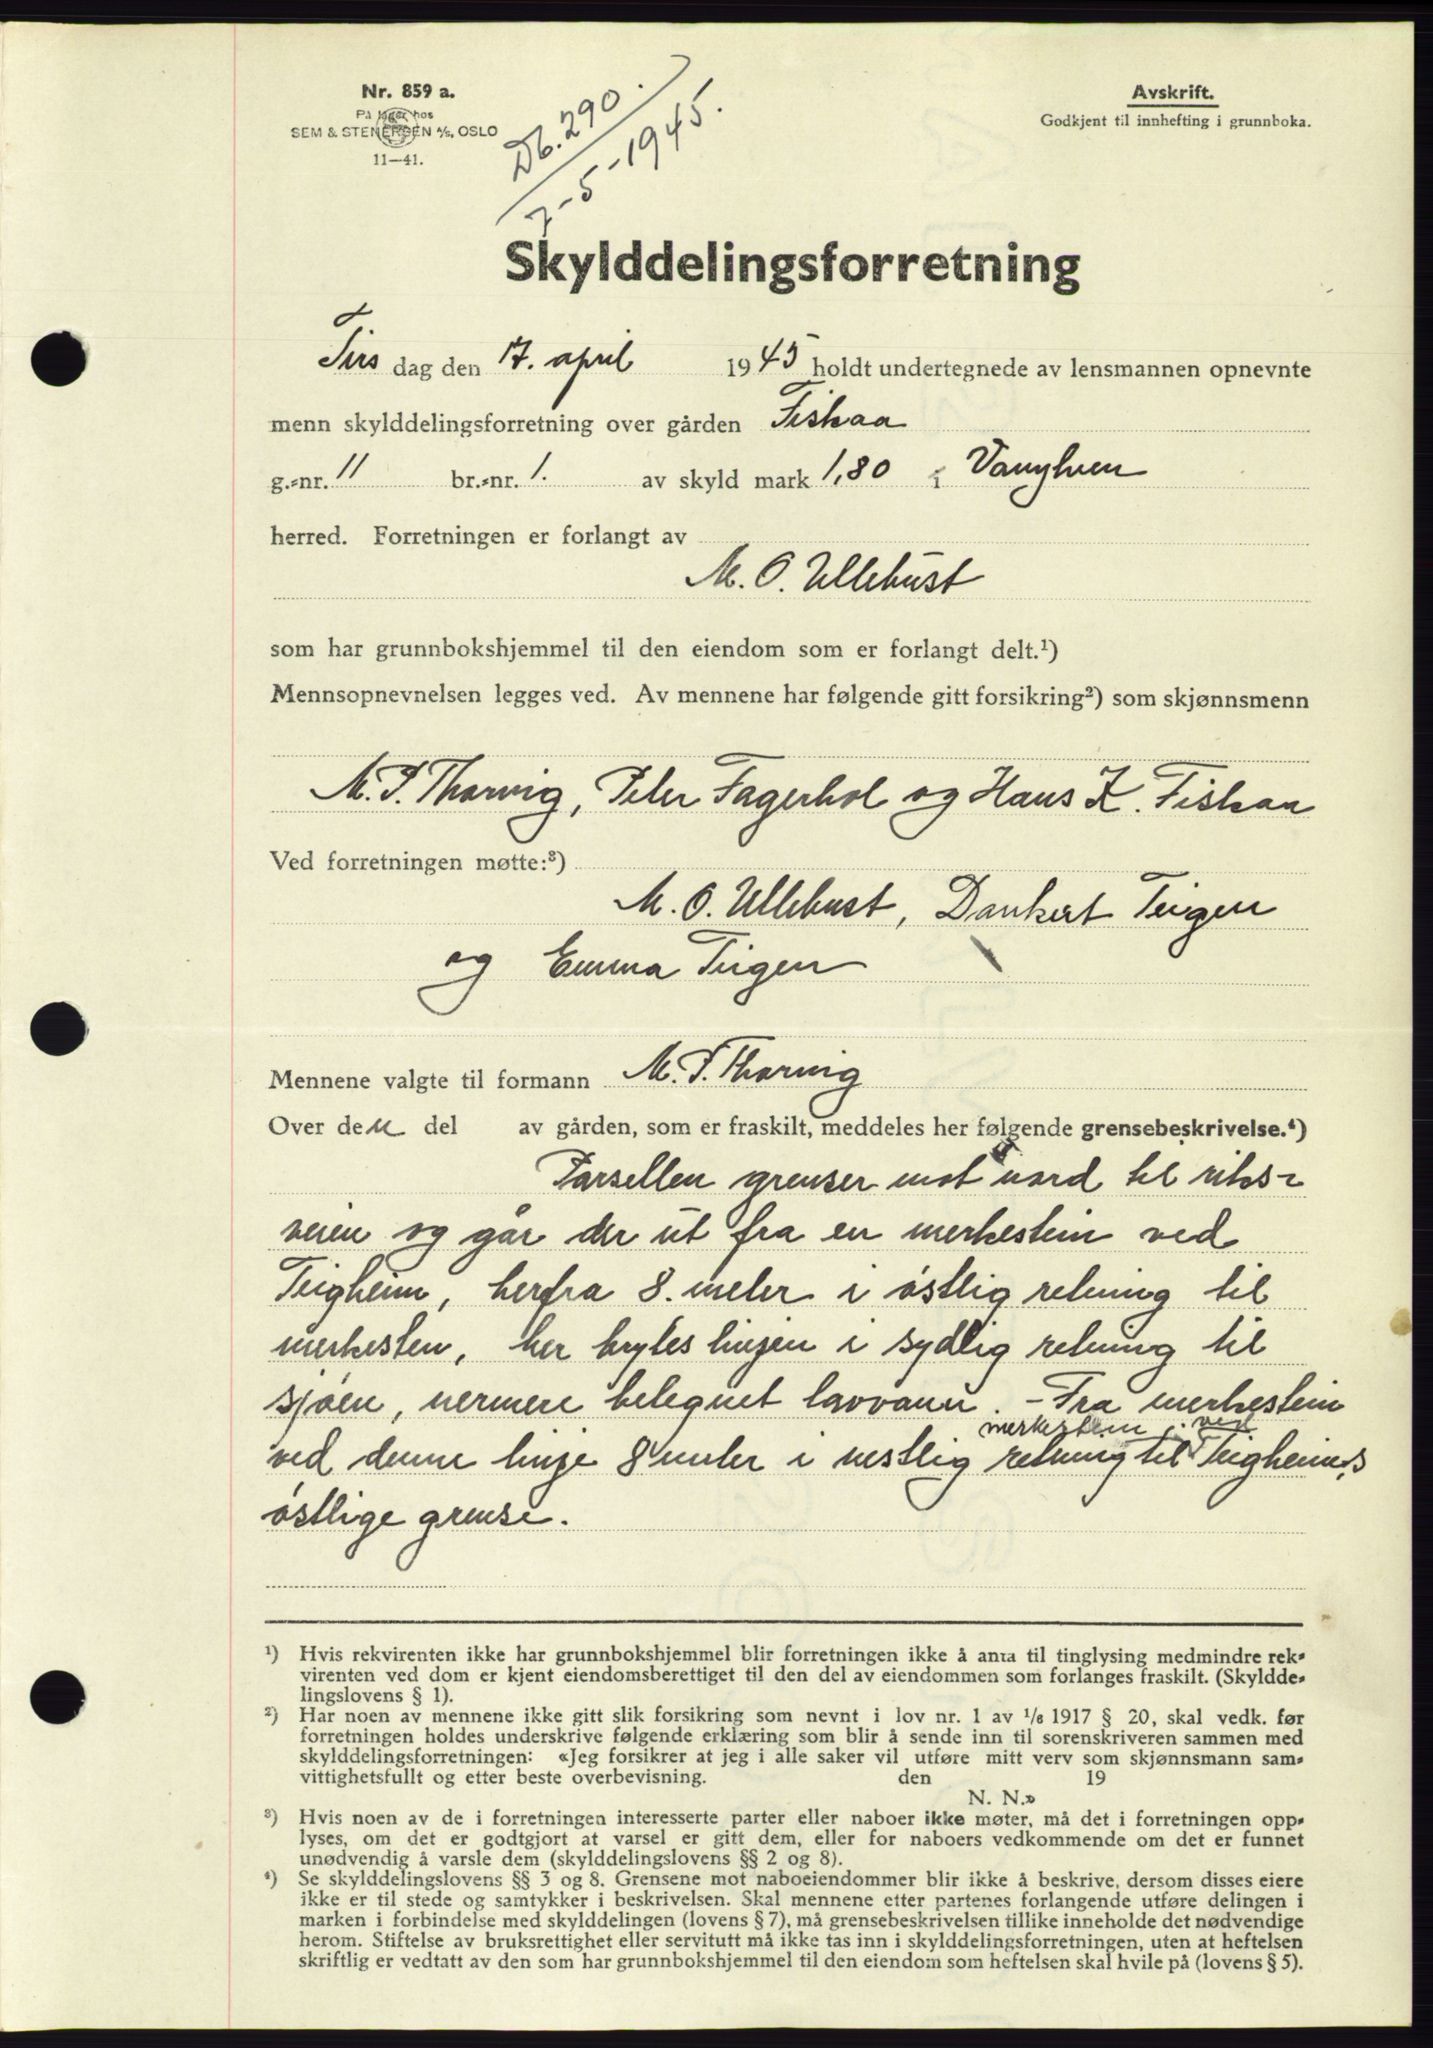 Nr. 859 a.
På lager hos
SEM & STENERSEN A/S, OSLO
11—41.
Db. 290.
7-5-1945.
Avskrift.
Godkjent til innhefting i grunnboka.
Skylddelingsforretning
Tirs dag den 17. april 1945 holdt undertegnede av lensmannen opnevnte
menn skylddelingsforretning over gården Fiskaa
g.-nr. 11 br.-nr. 1. av skyld mark 1,80 i Vanylven
herred. Forretningen er forlangt av
M. O. Ullebust
som har grunnbokshjemmel til den eiendom som er forlangt delt.¹)
Mennsopnevnelsen legges ved. Av mennene har følgende gitt forsikring²) som skjønnsmenn
M. P. Thorvig, Peter Fagerhol og Hans K. Fiskaa
Ved forretningen møtte:³)
M. O. Ullebust, Dankert Teigen
og Emma Teigen
Mennene valgte til formann M. P. Thorvig
Over den del av gården, som er fraskilt, meddeles her følgende grensebeskrivelse.⁴)
Parsellen grenser mot nord til riks-
veien og går der ut fra en merkestein ved
Teigheim, herfra 8. meter i østlig retning til
merkesten, her brytes linjen i sydlig retning til
sjøen, nermere betegnet lavvann. - Fra merkestein
merkestein ved
ved denne linje 8 meter i vestlig retning til Teigheims
østlige grense.
¹) Hvis rekvirenten ikke har grunnbokshjemmel blir forretningen ikke å anta til tinglysing medmindre rek-
virenten ved dom er kjent eiendomsberettiget til den del av eiendommen som forlanges fraskilt. (Skyldde-
lingslovens § 1).
²) Har noen av mennene ikke gitt slik forsikring som nevnt i lov nr. 1 av 1/6 1917 § 20, skal vedk. før
forretningen holdes underskrive følgende erklæring som blir å sende inn til sorenskriveren sammen med
skylddelingsforretningen: «Jeg forsikrer at jeg i alle saker vil utføre mitt verv som skjønnsmann sam-
vittighetsfullt og etter beste overbevisning. den 19
N. N.»
³) Hvis noen av de i forretningen interesserte parter eller naboer ikke møter, må det i forretningen opp-
lyses, om det er godtgjort at varsel er gitt dem, eller for naboers vedkommende om det er funnet
unødvendig å varsle dem (skylddelingslovens §§ 2 og 8).
⁴) Se skylddelingslovens §§ 3 og 8. Grensene mot naboeiendommer blir ikke å beskrive, dersom disses eiere
ikke er til stede og samtykker i beskrivelsen. Skal mennene etter partenes forlangende utføre delingen i
marken i forbindelse med skylddelingen (lovens § 7), må grensebeskrivelsen tillike inneholde det nødvendige
herom. Stiftelse av bruksrettighet eller servitutt må ikke tas inn i skylddelingsforretningen, uten at heftelsen
skriftlig er vedtatt av den som har grunnbokshjemmel til den eiendom som heftelsen skal hvile på (lovens § 5).